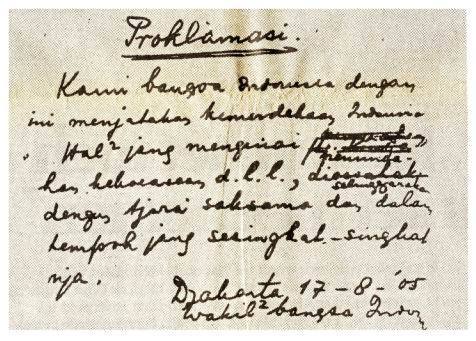 Proklamasi.
Kami bangsa Indonesia dengan
ini menjatakan kemerdekaan Indonesia
. Hal² jang mengenai
peminda-
han kekoeasaan d.l.l., dioesahak
diselenggarakan
dengan tjara saksama dan dalam
tempoh jang sesingkat-singkat
nja.
Djakarta 17 - 8 - '05
Wakil² bangsa Indon